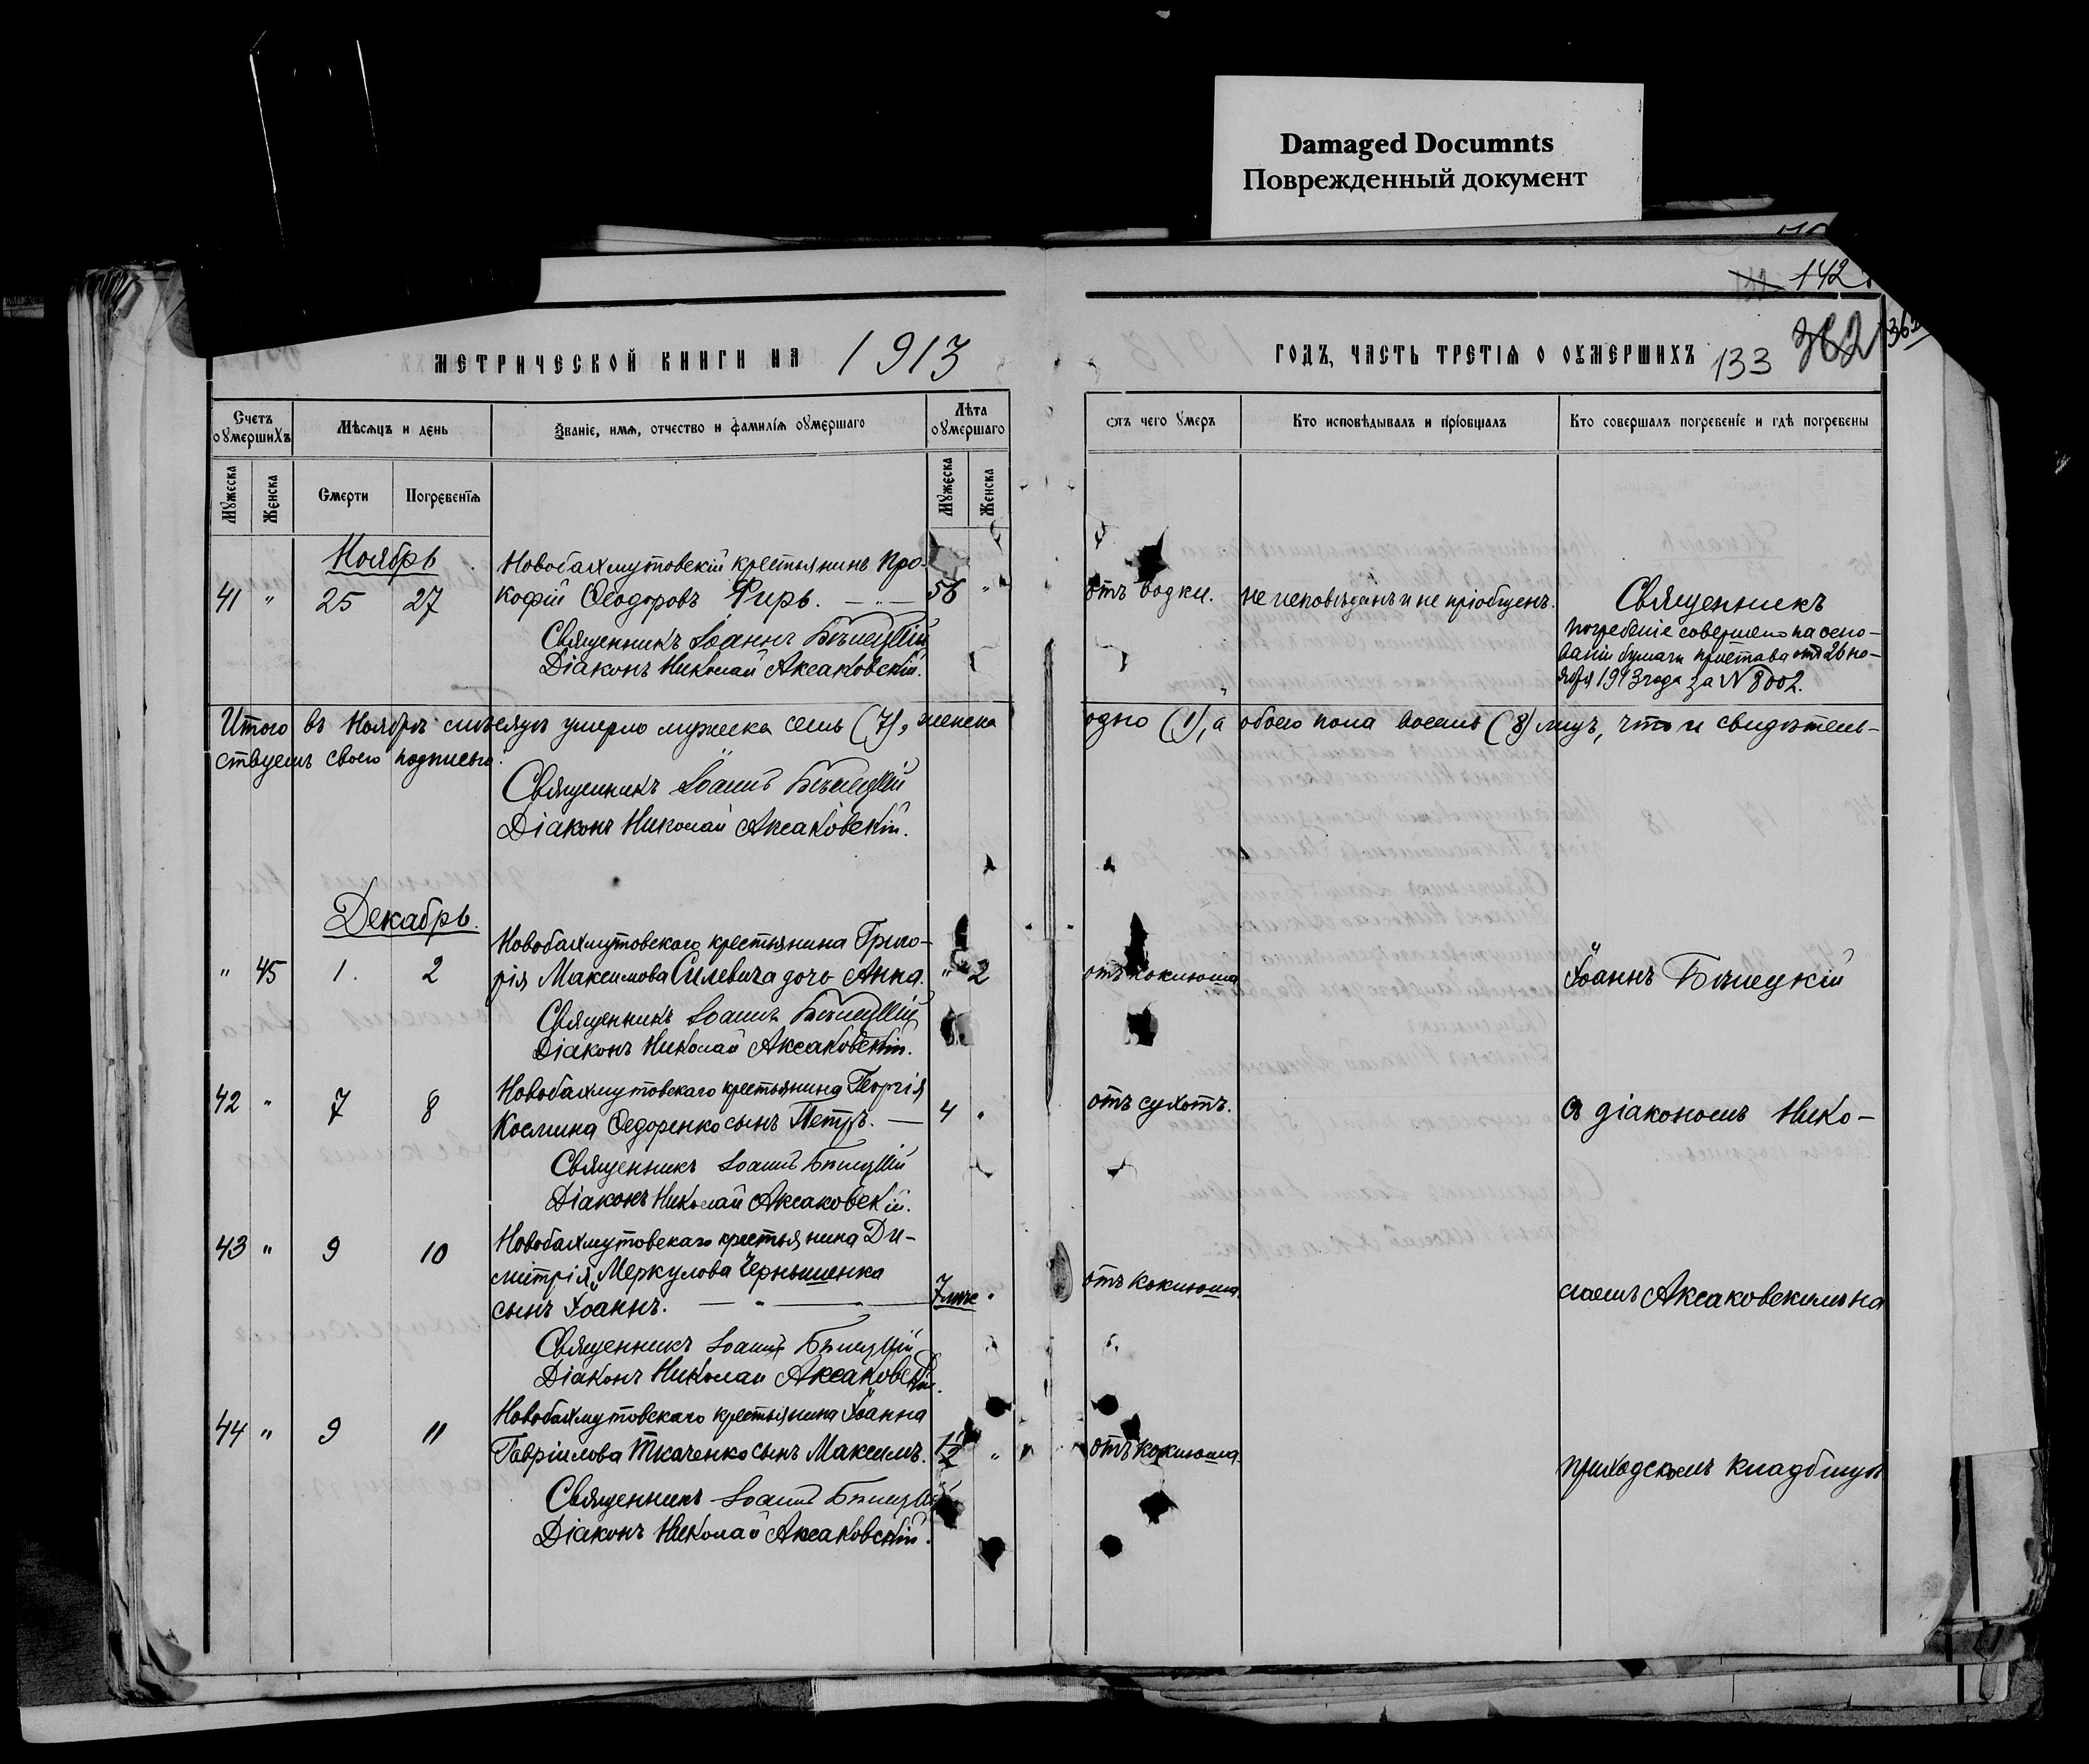 Damaged Documnts
Поврежденный документ
142
МЕТРИЧЕСКОЙ КНИГИ НА 1913
ГОДЪ, ЧАСТЬ ТРЕТІЯ О ОУМЕРШИХЪ 133 362
Счетъ оумершихъ
Мѣсяцъ и день
Званіе, имя, отчество и фамилія оумершаго
Лѣта оумершаго
отъ чего умеръ
Кто исповѣдывалъ и пріобщалъ
Кто совершалъ погребеніе и гдѣ погребены
Мужеска
Женска
Смерти
Погребенія
Мужеска
Женска
Ноябрь
Новобахмутовскій крестьянинъ Про-
41 " 25 27 кофій Ѳеодоровъ Фирь. 56 " отъ водки. не исповѣданъ и не пріобщенъ. Священникъ
Священникъ Іоаннъ Бѣлецкій
Діаконъ Николай Аксаковскій.
погребеніе совершено на осно-
ваніи бумаги пристава отъ 26 но-
ября 1913 года за N 8002.
Итого въ Ноябрѣ мѣсяцѣ умерло мужеска семь (7), женска одно (1), а обоего пола восемь (8) лицъ, что и свидѣтель-
ствуемъ своею подписью.
Священникъ Іоаннъ Бѣлецкій
Діаконъ Николай Аксаковскій.
Декабрь.
Новобахмутовскаго крестьянина Григо-
" 45 1. 2 рія Максимова Силевича дочь Анна. " 2 отъ коклюша Іоаннъ Бѣлецкій
Священникъ Іоаннъ Бѣлецкій
Діаконъ Николай Аксаковскій.
Новобахмутовскаго крестьянина Георгія
42 " 7 8 Космина Ѳедоренко сынъ Петръ. 4 " отъ сухотъ. съ діакономъ Нико-
Священникъ Іоаннъ Бѣлецкій
Діаконъ Николай Аксаковскій.
43 " 9 10 Новобахмутовскаго крестьянина Ди-
митрія Меркулова Чернышенка
сынъ Іоаннъ. 7 мѣс " отъ коклюша. лаемъ Аксаковскимъ на
Священникъ Іоаннъ Бѣлецкій
Діаконъ Николай Аксаковскій.
Новобахмутовскаго крестьянина Іоанна
44 " 9 11 Гавріилова Ткаченко сынъ Максимъ. " отъ коклюша. приходскомъ кладбищѣ
Священникъ Іоаннъ Бѣлецкій
Діаконъ Николай Аксаковскій.